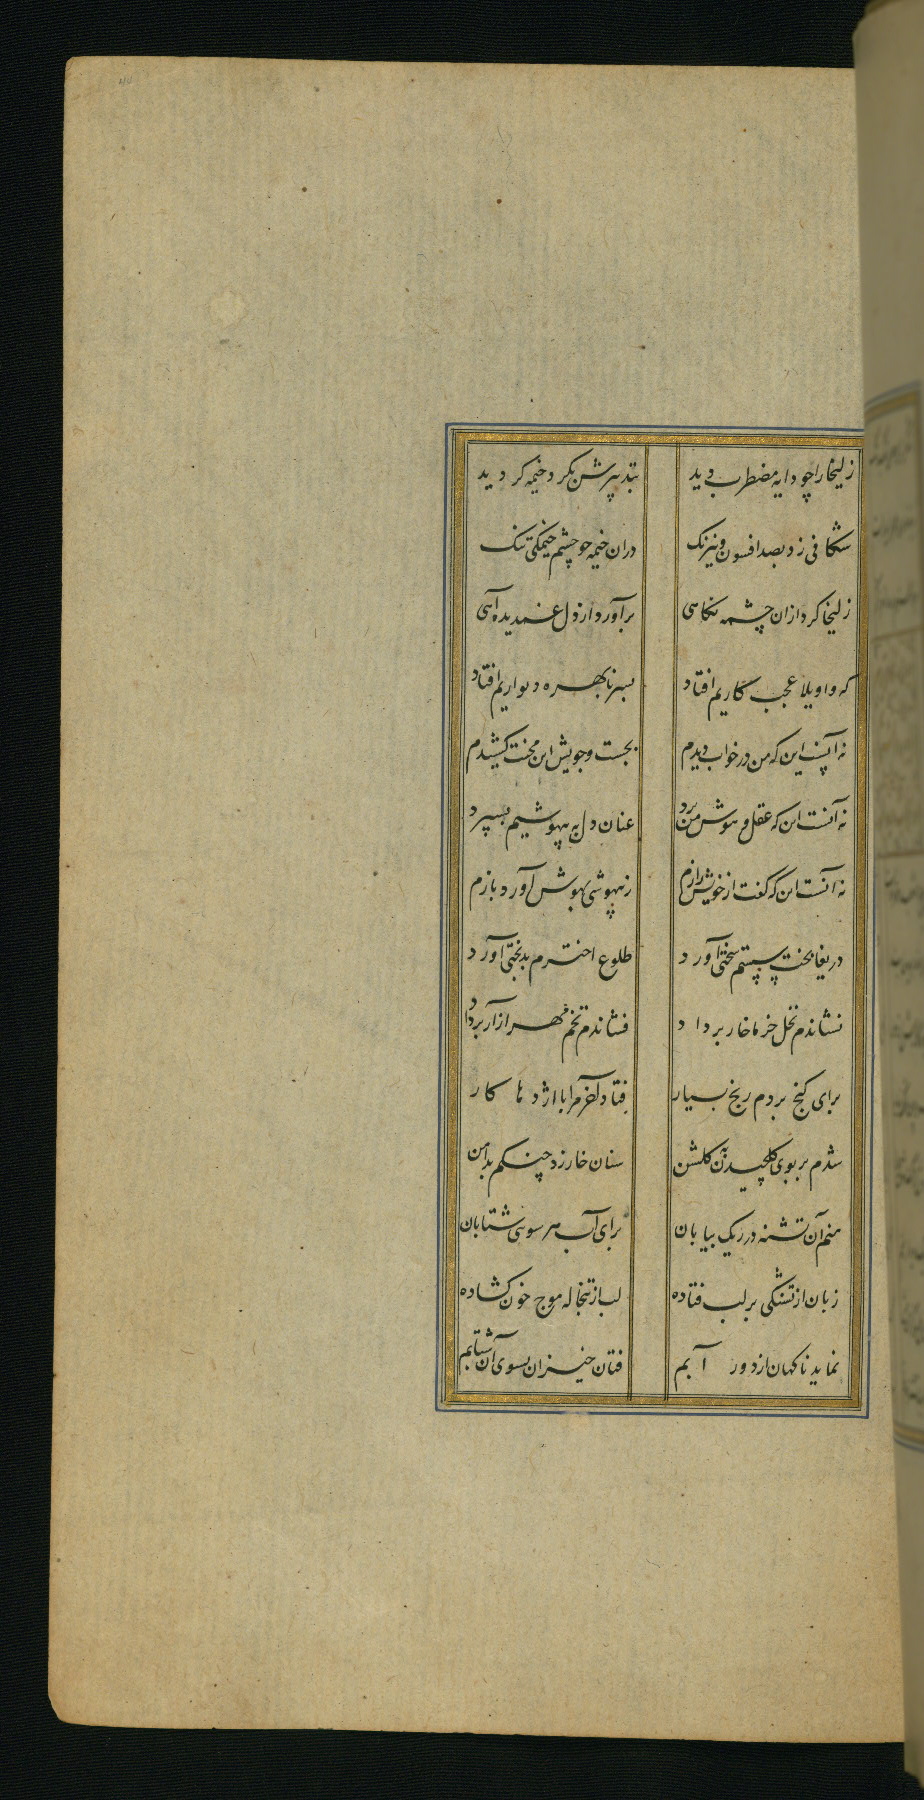 زلیخا را چو دایه مضطرب دید بتدبیرش بگرد خیمه گردید
شکافی زد بصد افسون و نیرنک دران خیمه چو چشم خیمکی تنک
زلیخا کرد ازان چشمه نکاهی برآورد از دل غمدیده آهی
که واویلا عجب کاریم افتاد بسر نابهره دیواریم افتاد
نه آنست این که من در خواب دیدم بجست و جویش این محنت کشیدم
نه آنست این که عقل و هوش من برد عنان دل به بیهوشیم بسپرد
نه آنست این که گفت از خویش رازم ز بیهوشی بهوش آورد بازم
دریغا بخت سستم سختی آورد طلوع اخترم بدبختی آورد
نشاندم نخل خرما خار بر داد فشاندم تخم مهر آزار بر داد
برای کنج بردم رنج بسیار فتاد آخر مرا با اژدها کار
شدم بر بوی کلچیدن به کلشن سنان خار زد چنکم بدامن
منم آن تشنه در ریک بیابان برای آب هر سوی شتابان
زبان از تشنکی بر لب فتاده لب از تبخاله موج خون کشاده
نماید ناکهان از دور آبم فتان خیزان بسوی آن شتابم